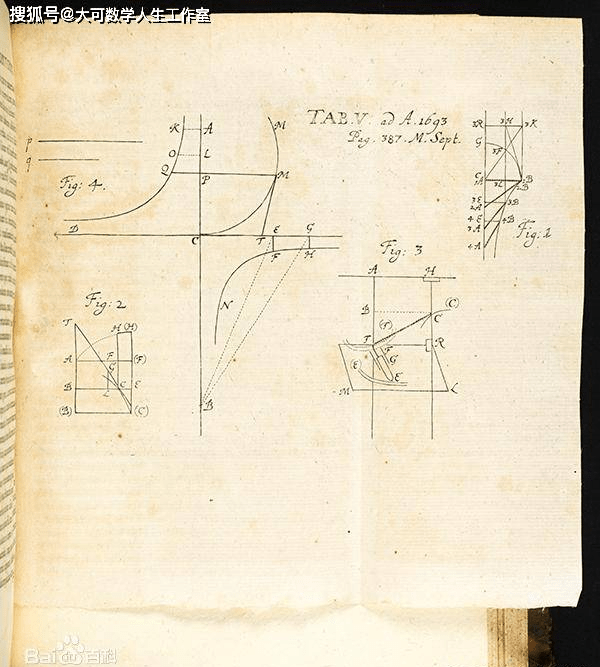 搜狐号@大可数学人生工作室
TAB.V. ad A.1693
Pag. 387. M. Sept.
K A M
3R 3H 3K
G
p
O L
q
Q P M
3F
Fig: 4.
D C T E G
F H
Fig: 1
N
Fig: 3
A H
B (C)
C
(F)
T F R
G
(E) E
M L
Fig: 2
T
H (H)
A F (F)
G
B L C E
(B) (C)
B
Bai百科